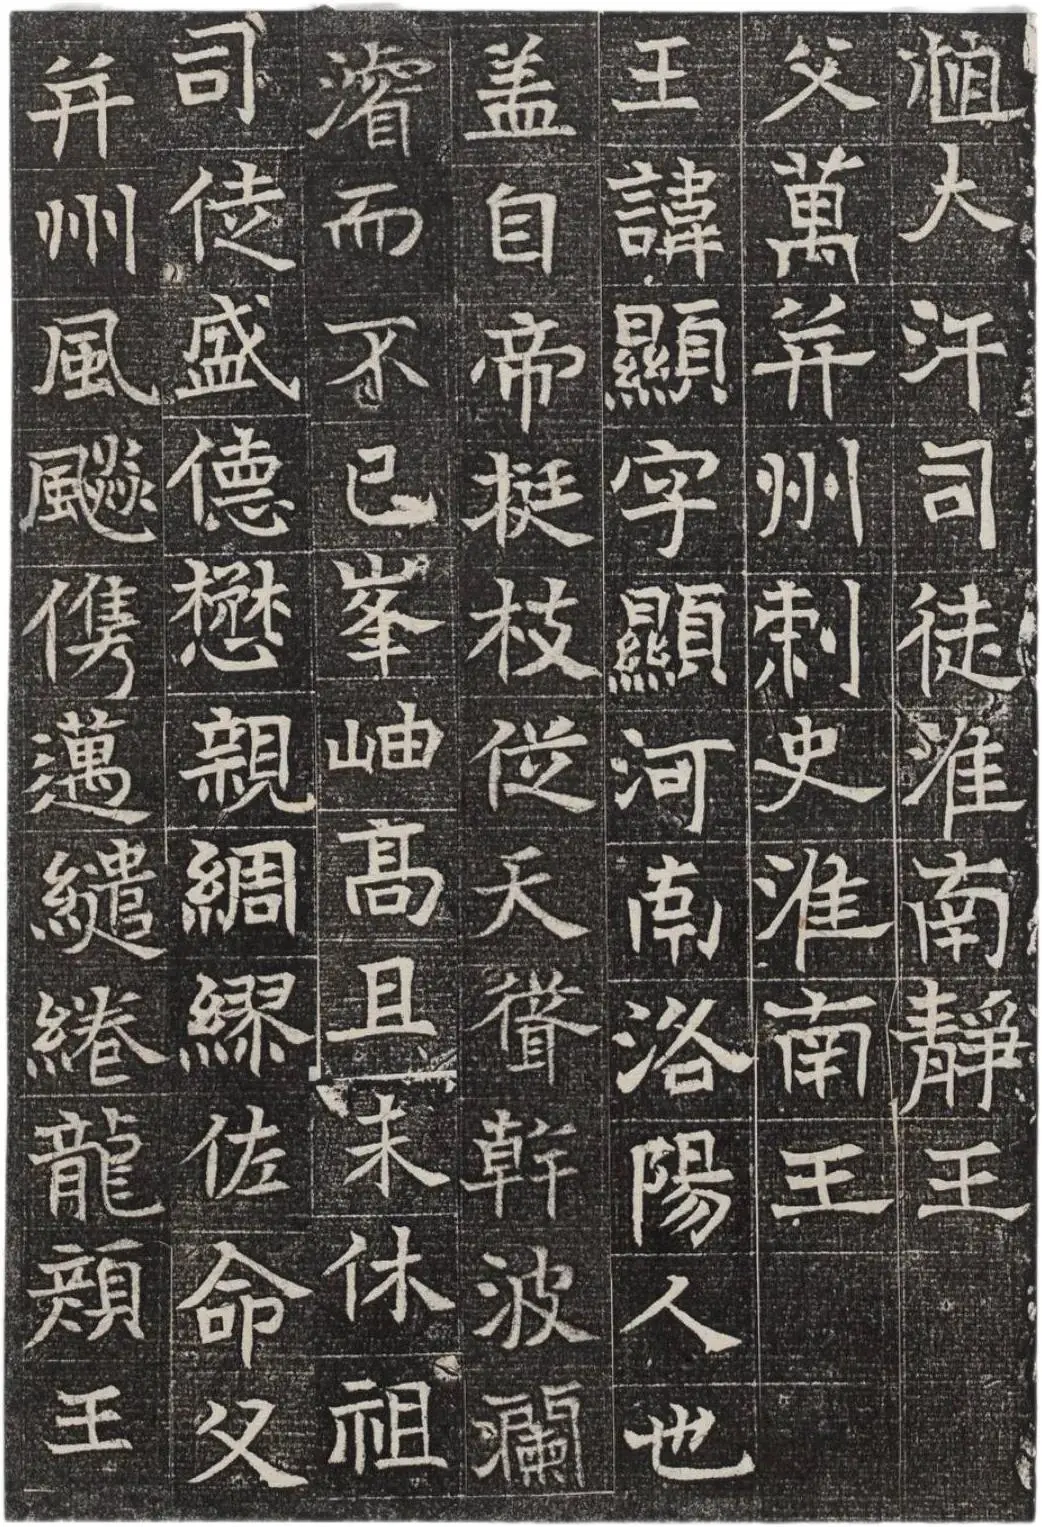 大汗司徒淮南靜王
父萬并州刺史淮南王
王諱顯字顯河南洛陽人也
盖自帝挺枝從天聳幹波瀾
濬而不已峯岫髙且未休祖
司徒盛德懋親綢繆佐命父
并州風飈儁邁繾綣龍顏王